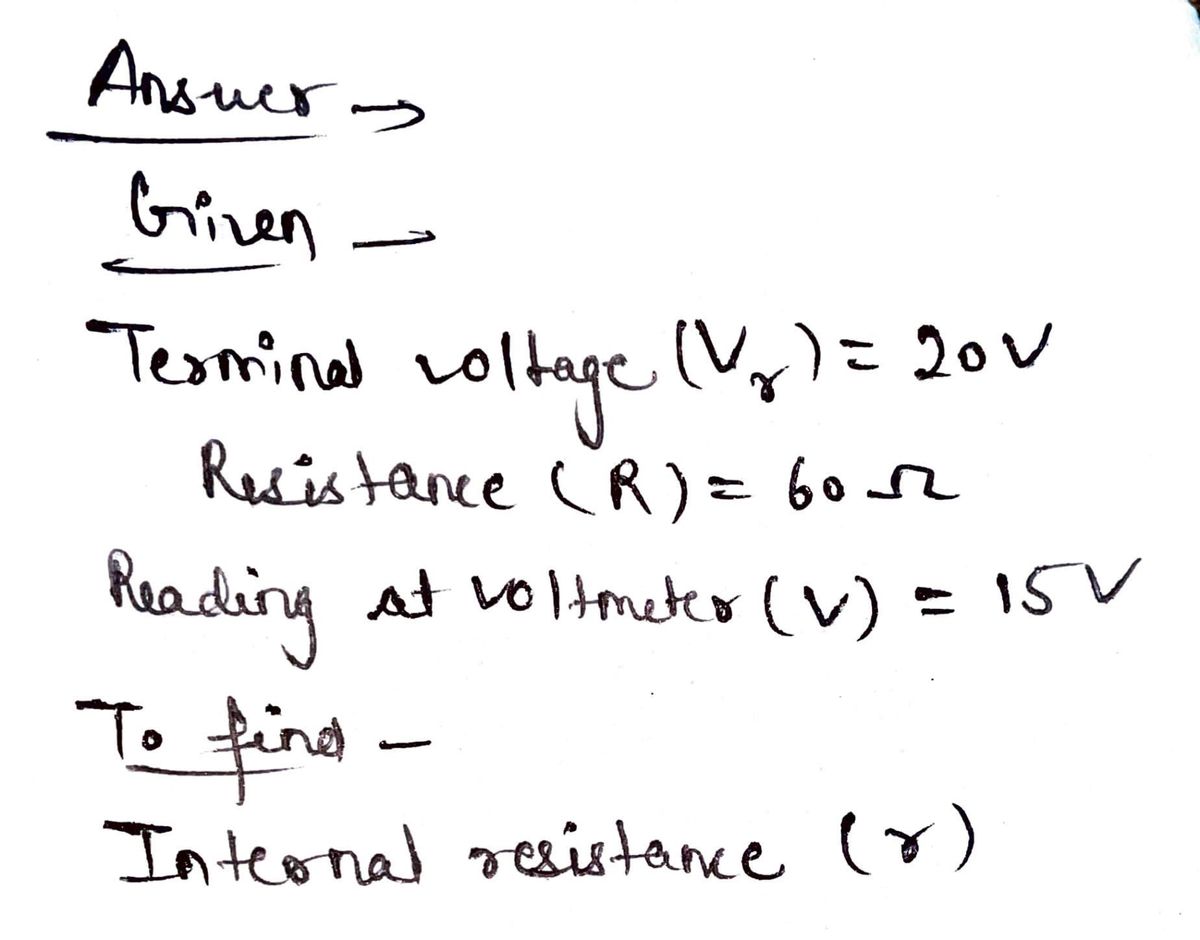 Answer →
Given →
Terminal voltage (Vr) = 20V
Resistance (R) = 60 Ω
Reading at voltmeter (V) = 15V
To find -
Internal resistance (r)